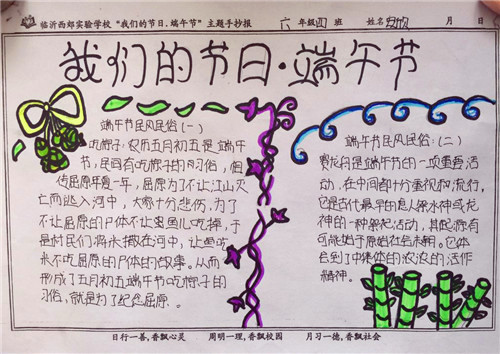 临沂西郊实验学校“我们的节日.端午节”主题手抄报 六 年级 四 班 姓名 月 日
我们的节日·端午节
端午节民风民俗(一)
吃粽子:农历五月初五是端午
节,民间有吃粽子的习俗,相
传屈原 一年,屈原为了不让江山灭
亡而跳入河中,大家十分悲伤,为了
不让屈原的尸体不让鱼儿吃掉,于
是村民们将米撒在河中,让鱼吃
米不吃屈原的尸体的故事。从而
形成了五月初五端午节吃粽子的
习俗,就是为了纪念屈原。
端午节民风民俗:(二)
赛龙舟是端午节的一项重要活
动,在中国都十分重视和流行,
它是古代最早的是人祭水神或龙
神的一种祭祀活动,其起源有
可能始于原始社会末期。它体
会到了中集体的浓浓的活作
精神。
日行一善,香飘心灵 周明一理,香飘校园 月习一德,香飘社会